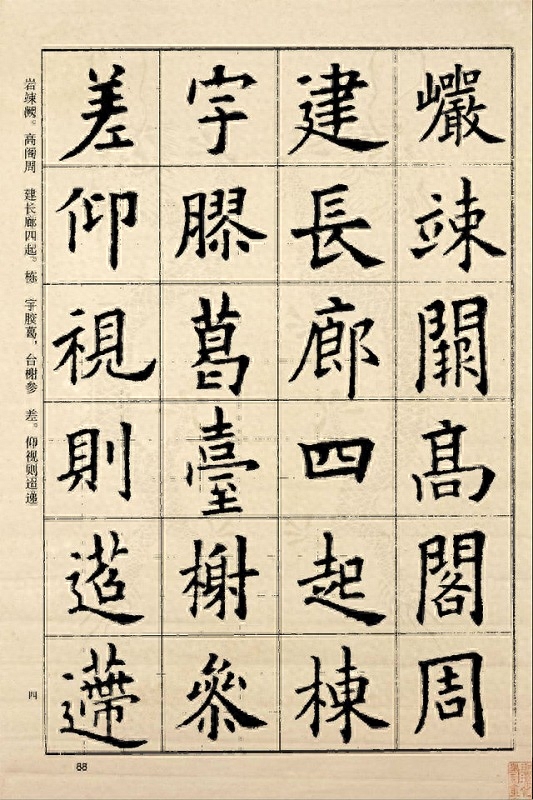 巗竦闕高閣周
建長廊四起棟
宇膠葛臺榭參
差仰視則迢遰
岩竦阙。高阁周 建长廊四起。栋 宇胶葛，台榭参 差。仰视则迢递
四
88